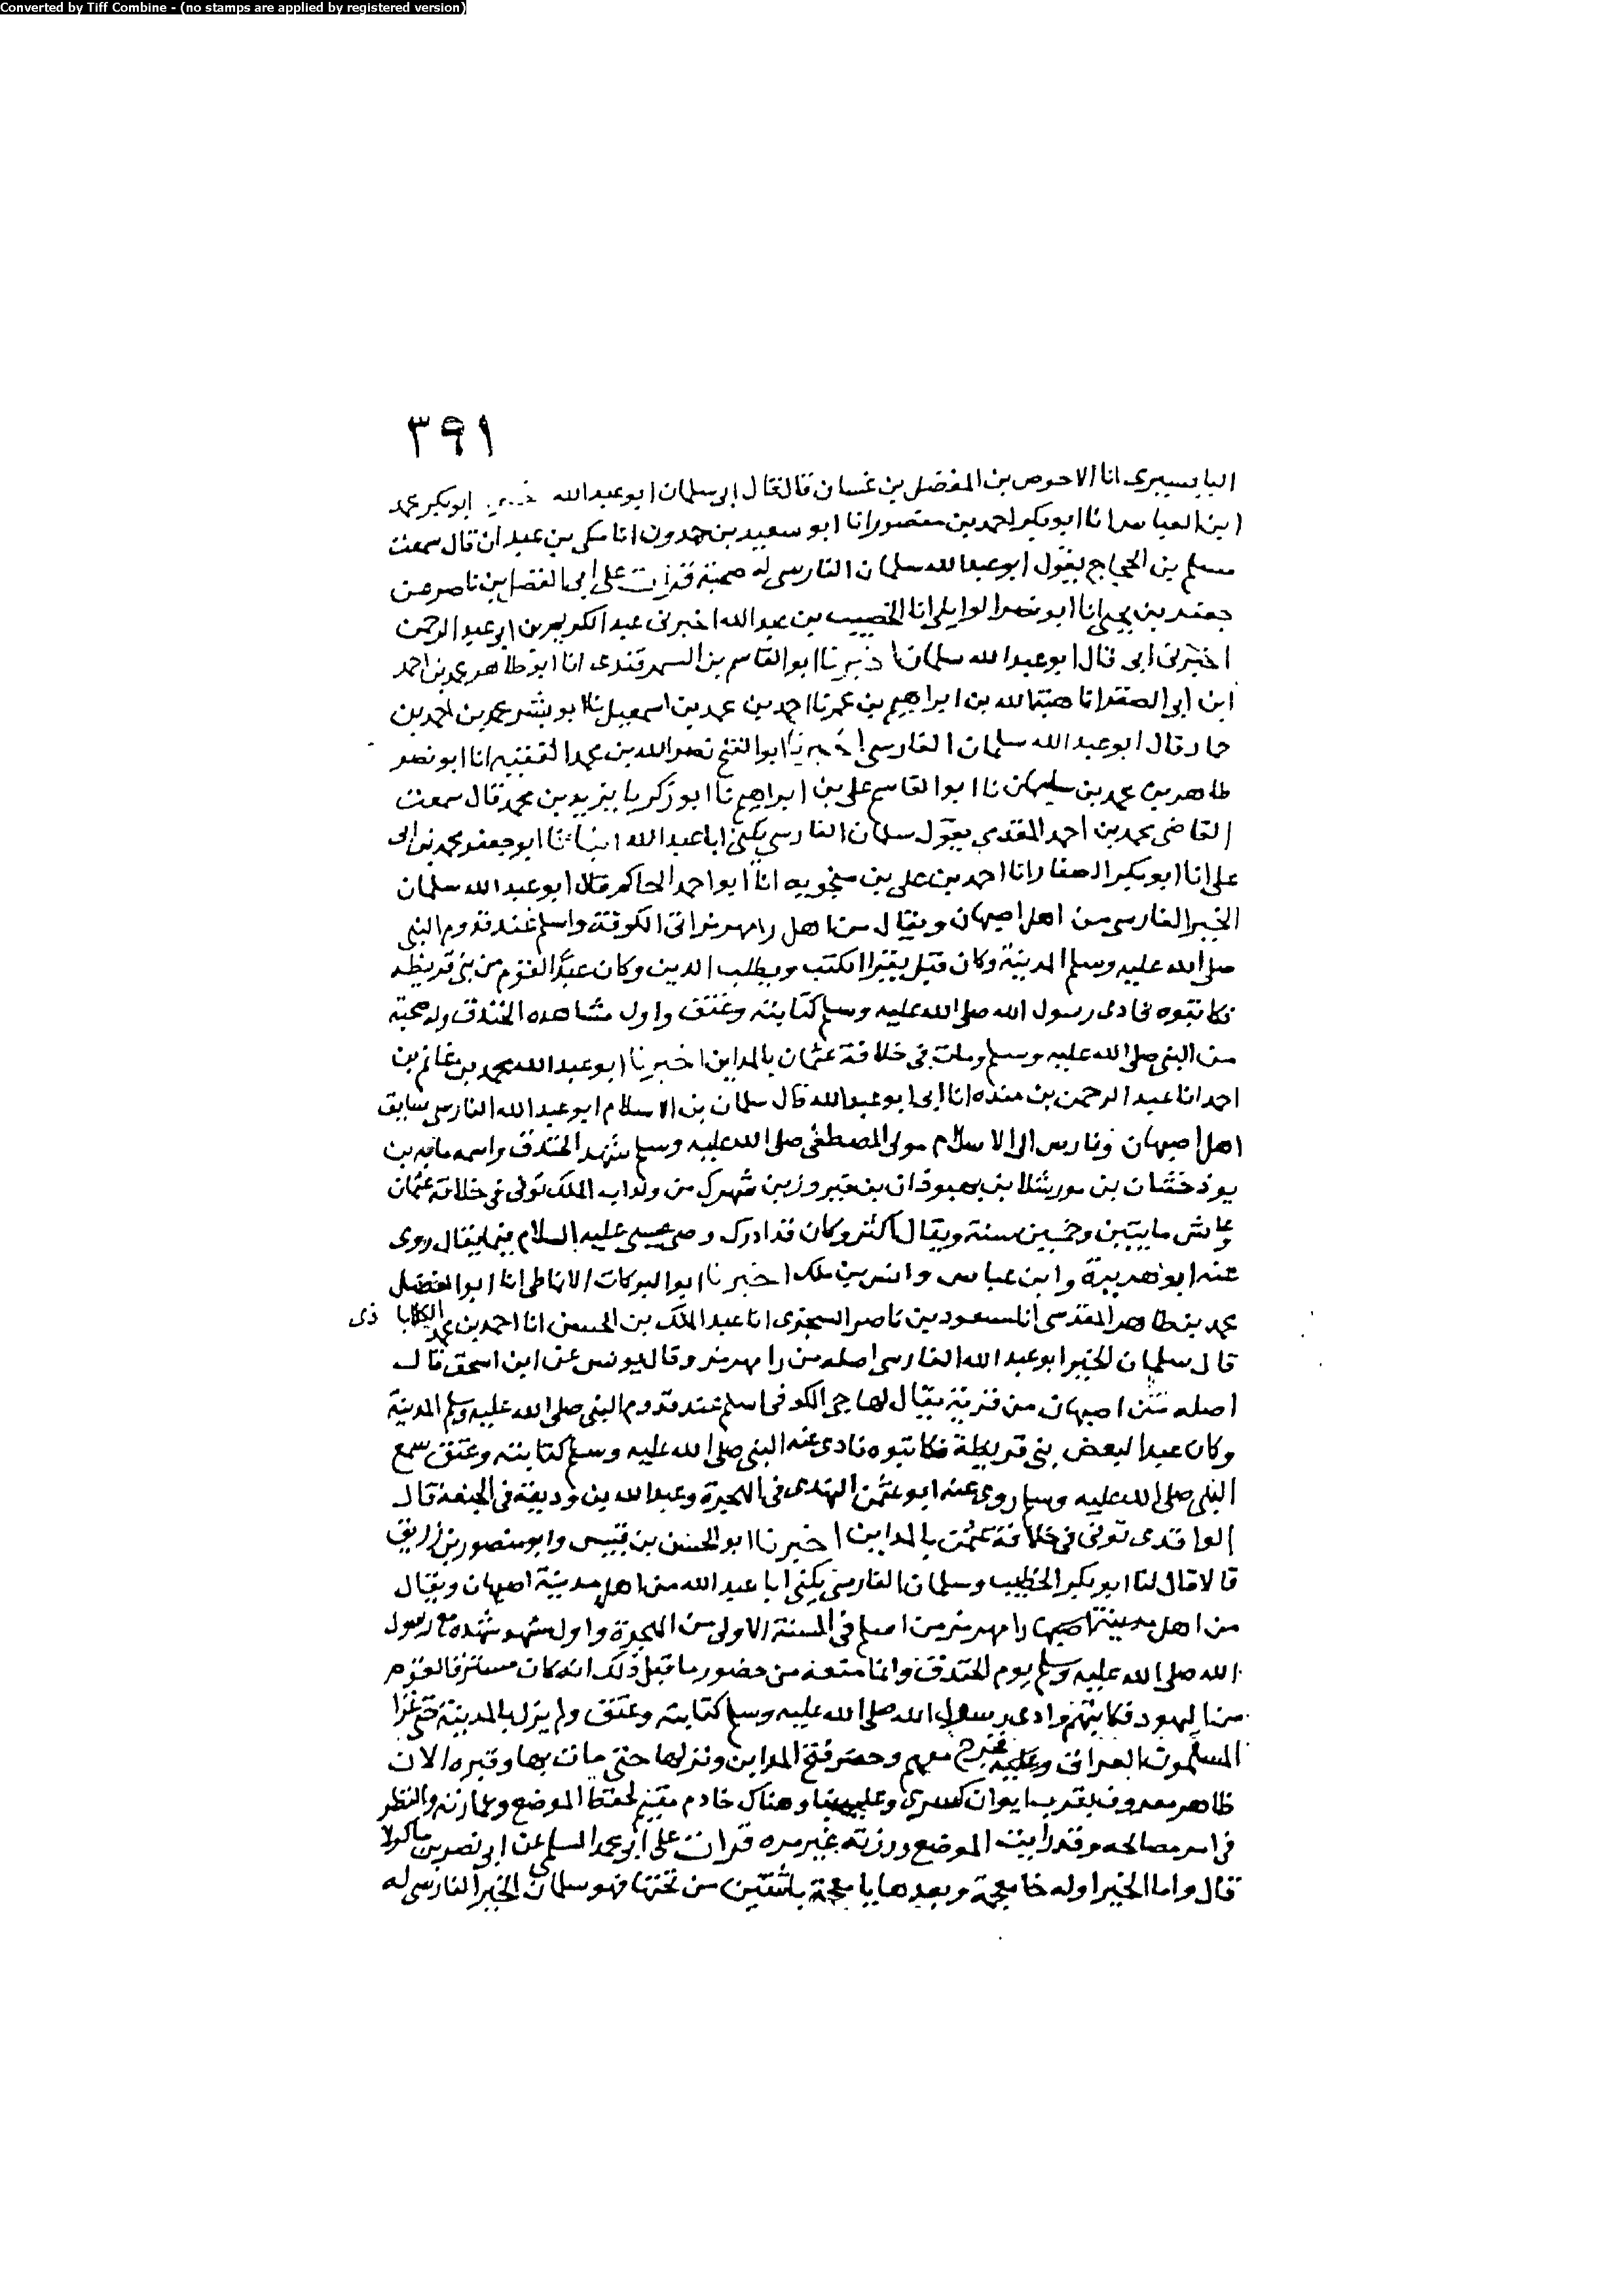 Converted by Tiff Combine - (no stamps are applied by registered version)
٣٩١
البابسيرى انا الاحوص بن المفضل بن غسان قال قال ابى سلمان ابو عبد الله ابو بكر محمد
ابن العباس انا ابو بكر احمد بن منصور انا ابو سعيد بن حمدون انا مكى بن عبدان قال سمعت
مسلم بن الحجاج يقول ابو عبد الله سلمان الفارسى له صحبة قرات على ابى الفضل بن ناصر عن
جعفر بن يحيى انا ابو نصر الوايلى انا الخصيب بن عبد الله اخبرنى عبد الكريم بن ابى عبد الرحمن
اخبرنى ابى قال ابو عبد الله سلمان اخبرنا ابو القاسم بن السمرقندى انا ابو طاهر محمد بن احمد
ابن ابى الصقر انا هبة الله بن ابراهيم بن عمر نا احمد بن محمد بن اسمعيل نا ابو بشر محمد بن احمد بن
حماد قال ابو عبد الله سلمان الفارسى اخبرنا ابو الفتح نصر الله بن محمد الفقيه انا ابو نصر
طاهر بن محمد بن سليمان نا ابو القاسم على بن ابراهيم نا ابو زكريا يزيد بن محمد قال سمعت
القاضى محمد بن احمد المقدمى يقول سلمان الفارسى يكنى ابا عبد الله انبانا ابو جعفر محمد بن ابى
على انا ابو بكر الصفار انا احمد بن على بن منجويه انا ابو احمد الحاكم قال ابو عبد الله سلمان
الخير الفارسى من اهل اصبهان ويقال من اهل رامهرمز اتى الكوفة واسلم عند قدوم النبى
صلى الله عليه وسلم المدينة وكان قبل يقرا الكتب ويطلب الدين وكان عبدا لقوم من بنى قريظه
فكاتبوه فادى رسول الله صلى الله عليه وسلم كتابته وعتق واول مشاهده الخندق وله صحبة
من النبى صلى الله عليه وسلم ومات فى خلافة عثمان بالمداين اخبرنا ابو عبد الله محمد بن غانم بن
احمد انا عبد الرحمن بن منده انا ابى ابو عبد الله قال سلمان بن الاسلام ابو عبد الله الفارسى سابق
اهل اصبهان وفارس الى الاسلام مولى المصطفى صلى الله عليه وسلم شهد الخندق واسمه مابه بن
بوذخشان بن مورسلا بن بهبوذان بن فيروز بن شهرك من ولد اب الملك توفى فى خلافة عثمان
وعاش مايتين وخمسين سنة ويقال اكثر وكان قد ادرك وصى عيسى عليه السلام فيما يقال روى
عنه ابو هريرة وابن عباس وانس بن ملك اخبرنا ابو البركات الانماطى انا ابو الفضل
محمد بن طاهر المقدسى انا مسعود بن ناصر السجزى انا عبد الملك بن الحسن انا احمد بن محمد الكلاباذى
قال سلمان الخير ابو عبد الله الفارسى اصله من رامهرمز وقال يونس عن ابن اسحق قال
اصله من اصبهان من قرية يقال لها جى الكوفى اسلم عند قدوم النبى صلى الله عليه وسلم المدينة
وكان عبدا لبعض بنى قريظة فكاتبوه فادى عنه النبى صلى الله عليه وسلم كتابته وعتق سمع
النبى صلى الله عليه وسلم روى عنه ابو عثمن النهدى فى الهجرة وعبد الله بن وديعة فى الجمعة قال
الواقدى توفى فى خلافة عثمن بالمداين اخبرنا ابو الحسن بن قبيس وابو منصور بن زريق
قالا قال لنا ابو بكر الخطيب وسلمان الفارسى يكنى ابا عبد الله من اهل مدينة اصبهان ويقال
من اهل مدينة اصبها رامهرمز من اسلم فى السنة الاولى من الهجرة واول مشهد شهده مع رسول
الله صلى الله عليه وسلم يوم الخندق وانما منعه من حضور ما قبل ذلك انه كان مسترقا لقوم
من اليهود فكاتبهم وادى رسول الله صلى الله عليه وسلم كتابته وعتق ولم يزل بالمدينة حتى غزا
المسلمون العراق فخرج معهم وحضر فتح المداين ونزلها حتى مات بها وقبره الان
ظاهر معروف بقرب ايوان كسرى وعليه بنا وهناك خادم مقيم لحفظ الموضع وعمارته والنظر
فى امر مصالحه وقد رايت الموضع وزرته غير مره قرات على ابى محمد السلمى عن ابى نصر بن ماكولا
قال واما الخير اوله خا معجمة وبعدها يا معجمة باثنتين من تحتها فهو سلمان الخير الفارسى له